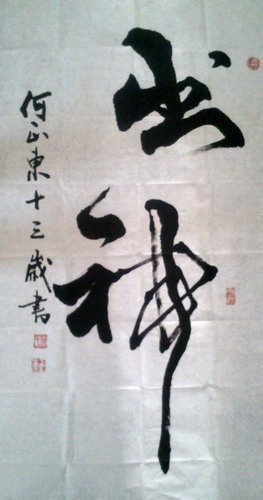 出神
何正東十三歲書